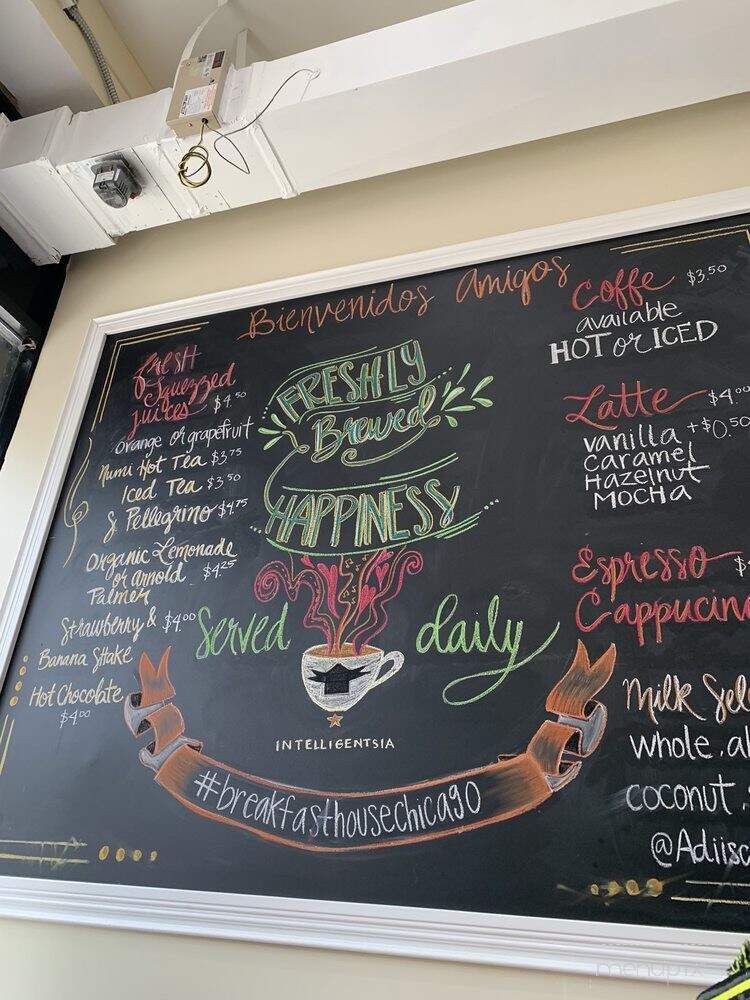 Bienvenidos Amigos
Fresh
Squezzed
Juices $4.50
Orange or grapefruit
Numi Hot Tea $3.75
Iced Tea $3.50
S. Pellegrino $4.75
Organic Lemonade
or arnold $4.25
Palmer
Strawberry & $4.00
Banana Shake
Hot Chocolate
$4.00
FRESHLY
Brewed
HAPPINESS
Served daily
INTELLIGENTSIA
#breakfasthousechicago
Coffe $3.50
available
HOT or ICED
Latte $4.00
vanilla +$0.50
caramel
Hazelnut
MOCHA
Espresso $
Cappucin
Milk Sel
whole, al
coconut,
@Adiisc
menupix